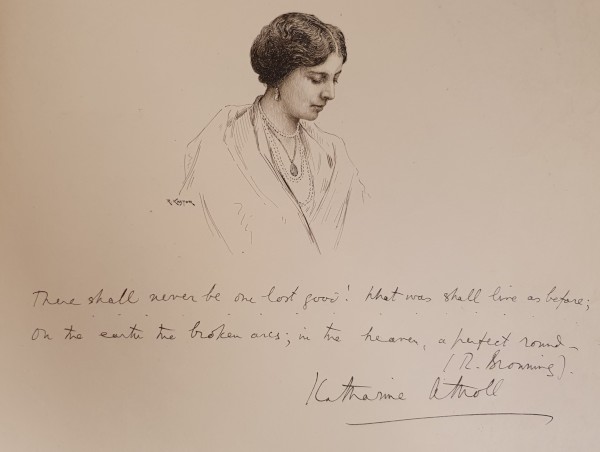 R. Easton
There shall never be one lost good! What was shall live as before;
. . . . . .
On the earth the broken arcs; in the heaven, a perfect round –
(R. Browning).
Katharine Atholl